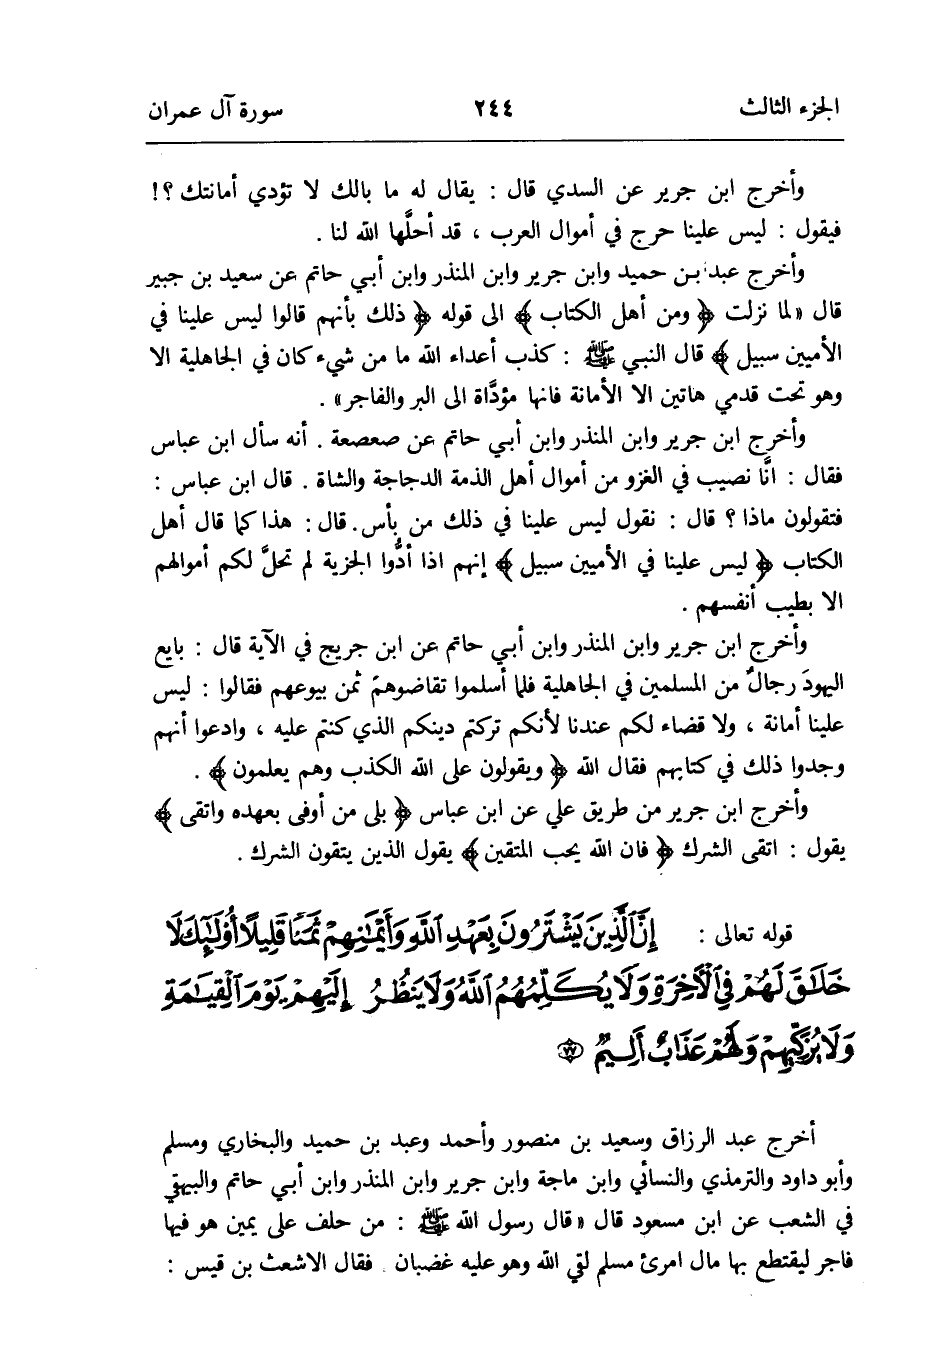 الجزء الثالث ٢٤٤ سورة آل عمران
وأخرج ابن جرير عن السدي قال : يقال له ما بالك لا تؤدي أمانتك ؟!
فيقول : ليس علينا حرج في أموال العرب ، قد أحلَّها الله لنا .
وأخرج عبد بن حميد وابن جرير وابن المنذر وابن أبي حاتم عن سعيد بن جبير
قال «لما نزلت ﴿ ومن أهل الكتاب ﴾ الى قوله ﴿ ذلك بأنهم قالوا ليس علينا في
الأميين سبيل ﴾ قال النبي ﷺ : كذب أعداء الله ما من شيء كان في الجاهلية الا
وهو تحت قدمي هاتين الا الأمانة فانها مؤدَّاة الى البر والفاجر» .
وأخرج ابن جرير وابن المنذر وابن أبي حاتم عن صعصعة . أنه سأل ابن عباس
فقال : انَّا نصيب في الغزو من أموال أهل الذمة الدجاجة والشاة . قال ابن عباس :
فتقولون ماذا ؟ قال : نقول ليس علينا في ذلك من بأس. قال : هذا كما قال أهل
الكتاب ﴿ ليس علينا في الأميين سبيل ﴾ إنهم اذا أدُّوا الجزية لم تحلَّ لكم أموالهم
الا بطيب أنفسهم .
وأخرج ابن جرير وابن المنذر وابن أبي حاتم عن ابن جريج في الآية قال : بايع
اليهودَ رجالٌ من المسلمين في الجاهلية فلما أسلموا تقاضوهمْ ثمن بيوعهم فقالوا : ليس
علينا أمانة ، ولا قضاء لكم عندنا لأنكم تركتم دينكم الذي كنتم عليه ، وادعوا أنهم
وجدوا ذلك في كتابهم فقال الله ﴿ ويقولون على الله الكذب وهم يعلمون ﴾ .
وأخرج ابن جرير من طريق علي عن ابن عباس ﴿ بلى من أوفى بعهده واتقى ﴾
يقول : اتقى الشرك ﴿ فان الله يحب المتقين ﴾ يقول الذين يتقون الشرك .
قوله تعالى : إِنَّ ٱلَّذِينَ يَشْتَرُونَ بِعَهْدِ ٱللَّهِ وَأَيْمَٰنِهِمْ ثَمَنًا قَلِيلًا أُوْلَٰٓئِكَ لَا
خَلَٰقَ لَهُمْ فِي ٱلْأَخِرَةِ وَلَا يُكَلِّمُهُمُ ٱللَّهُ وَلَا يَنظُرُ إِلَيْهِمْ يَوْمَ ٱلْقِيَٰمَةِ
وَلَا يُزَكِّيهِمْ وَلَهُمْ عَذَابٌ أَلِيمٌ ٧٧
أخرج عبد الرزاق وسعيد بن منصور وأحمد وعبد بن حميد والبخاري ومسلم
وأبو داود والترمذي والنسائي وابن ماجة وابن جرير وابن المنذر وابن أبي حاتم والبيهقي
في الشعب عن ابن مسعود قال «قال رسول الله ﷺ : من حلف على يمين هو فيها
فاجر ليقتطع بها مال امرئ مسلم لقي الله وهو عليه غضبان . فقال الاشعث بن قيس :